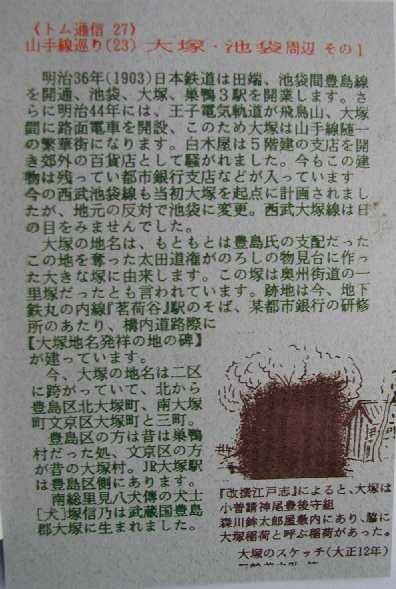 《トム通信 27》
山手線巡り(23) 大塚・池袋周辺 その1
明治36年(1903)日本鉄道は田端、池袋間豊島線
を開通、池袋、大塚、巣鴨3駅を開業します。さ
らに明治44年には、王子電気軌道が飛鳥山、大塚
間に路面電車を開設、このため大塚は山手線随一
の繁華街になります。白木屋は5階建の支店を開
き郊外の百貨店として騒がれました。今もこの建
物は残ってい都市銀行支店などが入っています
今の西武池袋線も当初大塚を起点に計画されまし
たが、地元の反対で池袋に変更。西武大塚線は日
の目をみませんでした。
大塚の地名は、もともとは豊島氏の支配だった
この地を奪った太田道潅がのろしの物見台に作っ
た大きな塚に由来します。この塚は奥州街道の一
里塚だったとも言われています。跡地は今、地下
鉄丸の内線『茗荷谷』駅のそば、某都市銀行の研修
所のあたり、構内道路際に
【大塚地名発祥の地の碑】
が建っています。
今、大塚の地名は二区
に跨がっていて、北から
豊島区北大塚町、南大塚
町文京区大塚町と三町。
豊島区の方は昔は巣鴨
村だった処、文京区の方
が昔の大塚村。JR大塚駅
は豊島区側にあります。
南総里見八犬傳の犬士
[犬]塚信乃は武蔵国豊島
郡大塚に生まれました。
『改撰江戸志』によると、大塚は
小普請神尾豊後守組
森川鉾太郎屋敷内にあり、脇に
大塚稲荷と呼ぶ稲荷があった。
大塚のスケッチ(大正12年)